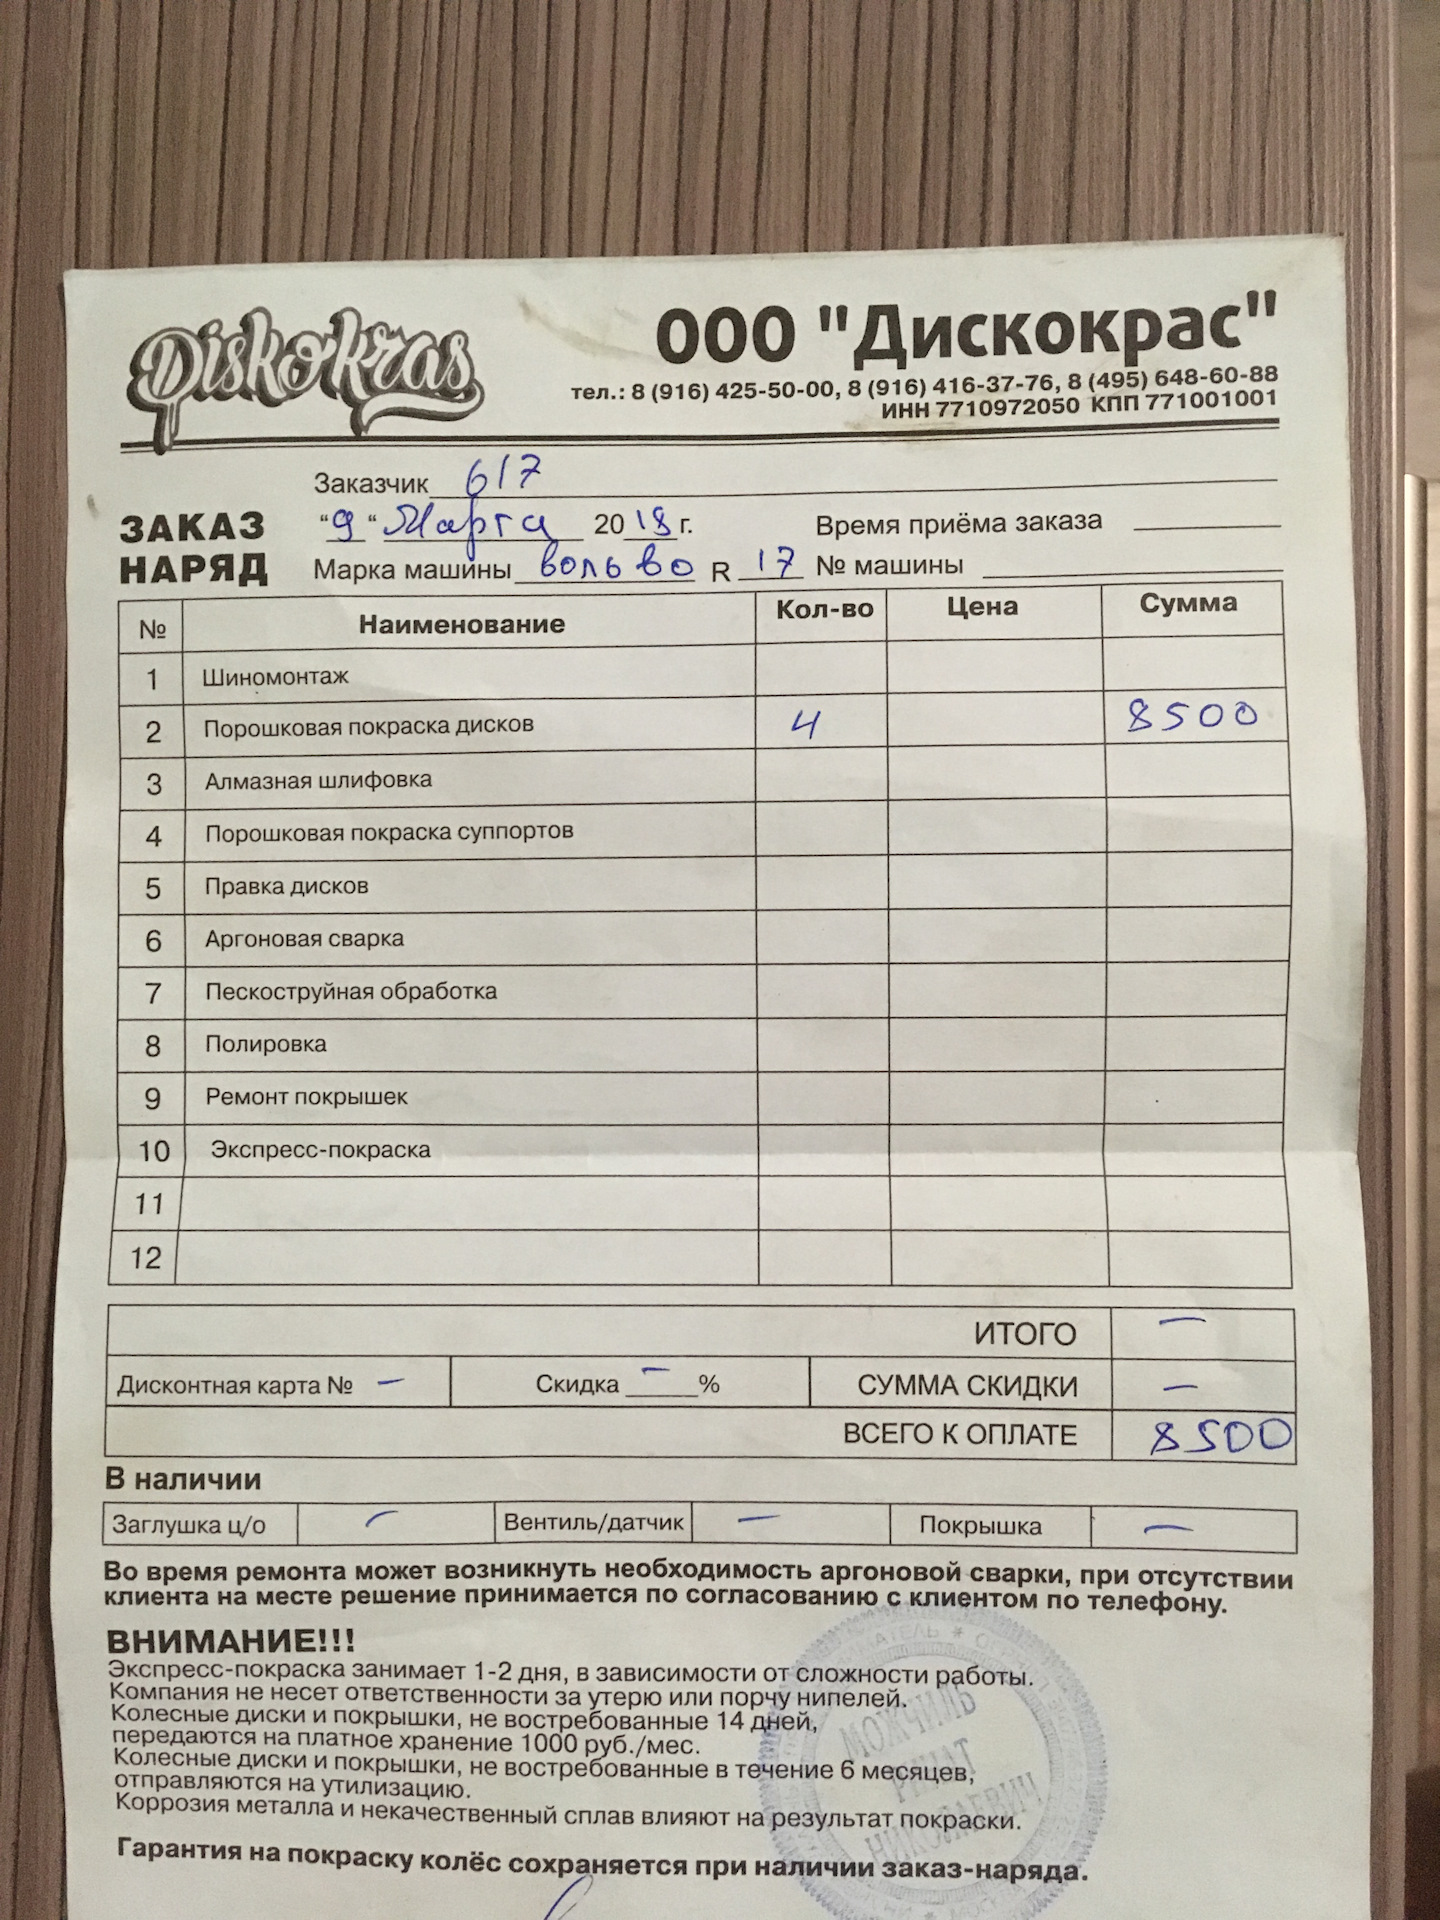 Diskokras
ООО "Дискокрас"
тел.: 8 (916) 425-50-00, 8 (916) 416-37-76, 8 (495) 648-60-88
ИНН 7710972050 КПП 771001001
ЗАКАЗ НАРЯД
Заказчик 617
"9" Марта 2018 г. Время приёма заказа
Марка машины вольво R 17 № машины
№ Наименование Кол-во Цена Сумма
1 Шиномонтаж
2 Порошковая покраска дисков 4 8500
3 Алмазная шлифовка
4 Порошковая покраска суппортов
5 Правка дисков
6 Аргоновая сварка
7 Пескоструйная обработка
8 Полировка
9 Ремонт покрышек
10 Экспресс-покраска
11
12
ИТОГО —
Дисконтная карта № — Скидка — % СУММА СКИДКИ —
ВСЕГО К ОПЛАТЕ 8500
В наличии
Заглушка ц/о — Вентиль/датчик — Покрышка —
Во время ремонта может возникнуть необходимость аргоновой сварки, при отсутствии
клиента на месте решение принимается по согласованию с клиентом по телефону.
ВНИМАНИЕ!!!
Экспресс-покраска занимает 1-2 дня, в зависимости от сложности работы.
Компания не несет ответственности за утерю или порчу нипелей.
Колесные диски и покрышки, не востребованные 14 дней,
передаются на платное хранение 1000 руб./мес.
Колесные диски и покрышки, не востребованные в течение 6 месяцев,
отправляются на утилизацию.
Коррозия металла и некачественный сплав влияют на результат покраски.
Гарантия на покраску колёс сохраняется при наличии заказ-наряда.
МОЖЧИЛЬ
РИНАТ
НИКОЛАЕВИЧ